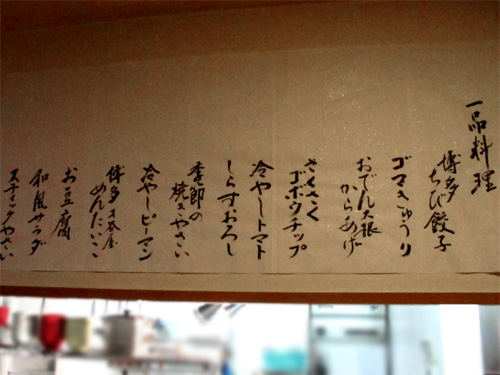 一品料理
博多
ちび餃子
ゴマきゅうり
おでん大根
からあげ
さくさく
ゴボウチップ
冷やしトマト
しらすおろし
季節の
焼きやさい
冷やしピーマン
博多
めんたいこ
お豆腐
和風サラダ
スティックやさい